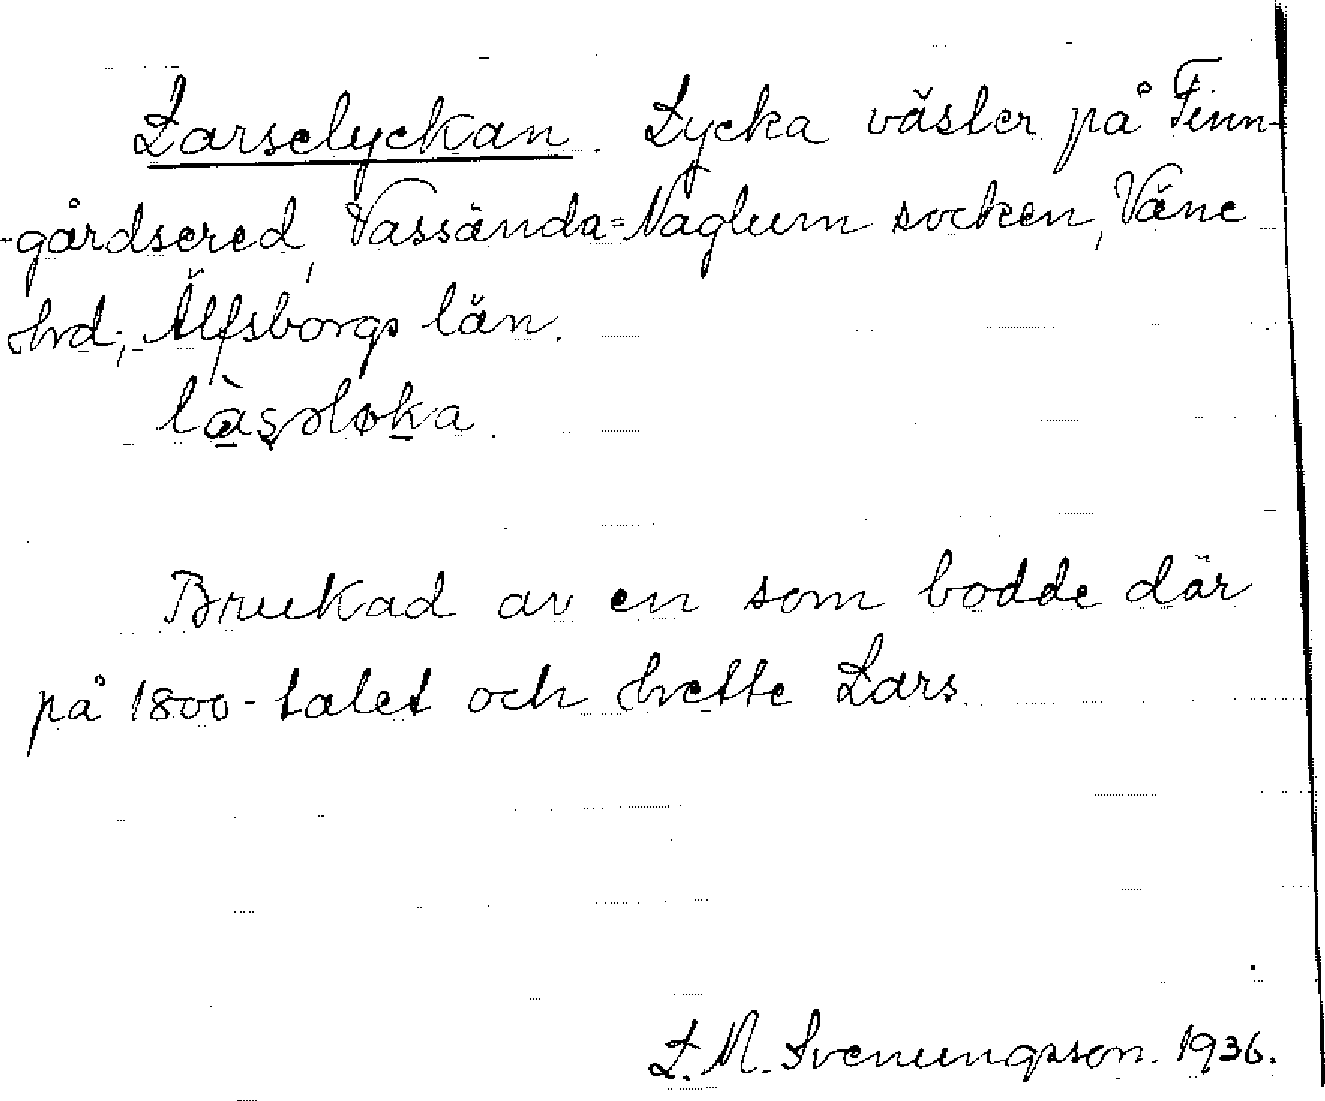 Larselyckan. Lycka väster på Finn-
-gårdsered, Vassända=Naglum socken, Väne
hrd; Älfsborgs län.
Brukad av en som bodde där
på 1800-talet och hette Lars.
L. M. Svenungsson. 1936.